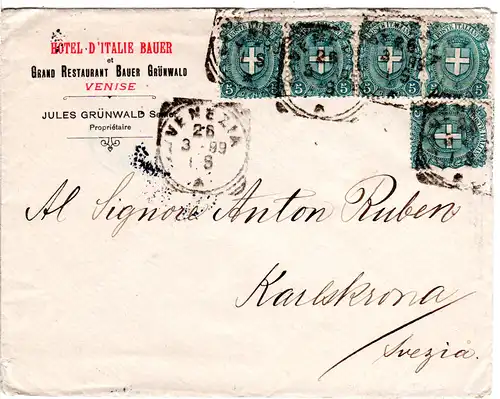 HOTEL D'ITALIE BAUER
et
GRAND RESTAURANT BAUER GRÜNWALD
VENISE
JULES GRÜNWALD
Propriétaire
VENEZIA
26
3-99
8 S
5 5 5 5
Al Signore Anton Ruben
Karlskrona
Svezia.